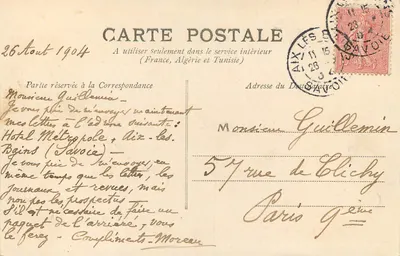 26 Août 1904
CARTE POSTALE
A utiliser seulement dans le service intérieur
(France, Algérie et Tunisie)
Partie réservée à la Correspondance
Adresse du
Monsieur Guillemin
Je vous prie de m'envoyer maintenant
mes lettres à l'adresse suivante :
Hotel Métropole, Aix-les-
Bains (Savoie) —
je vous prie de m'envoyer, en
même temps que les lettres, les
journaux et revues, mais
non pas les prospectus
S'il est nécessaire de faire un
paquet de l'arriéré, vous
le ferez — Compliments - Moreau
Monsieur Guillemin
57 rue de Clichy
Paris 9ème
AIX LES BAINS
11 15
26
SAVOIE
AIX LES BAINS
11 15
26
SAVOIE